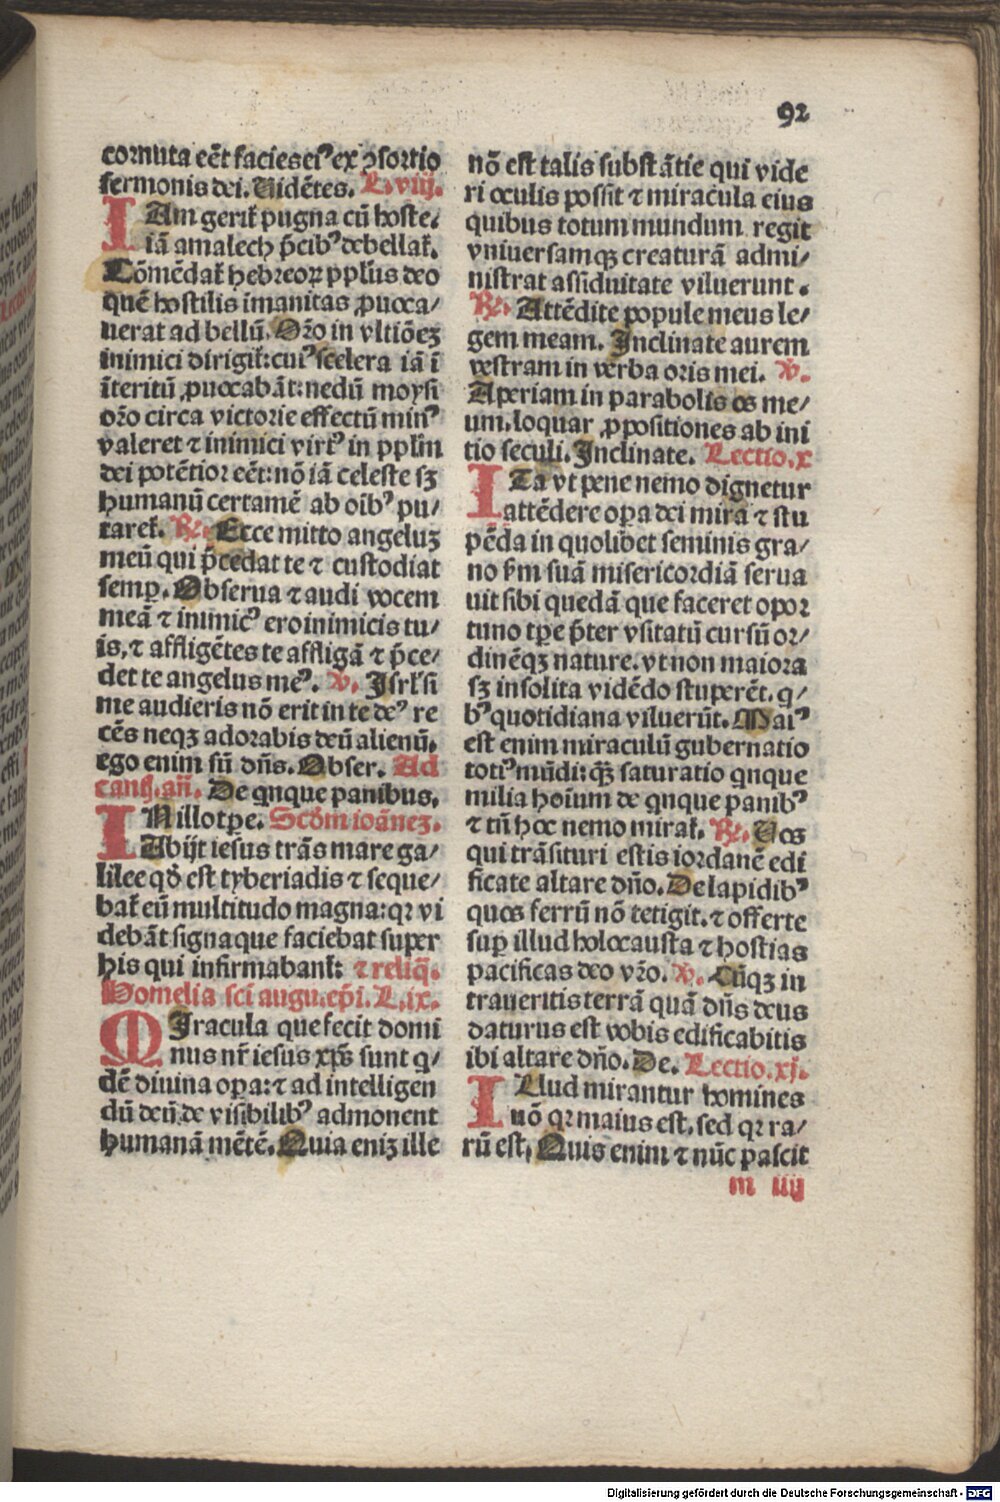 92
cornuta eēt facies eiꝰ ex ↄsortio
sermonis dei. Uidētes. L. viij.
IAm gerit̄ pugna cū hoste.
iā amalech p̄cibꝰ debellat̄.
Cōmēdat̄ hebreoꝝ ppl̄us deo
quē hostilis imanitas ꝓuoca/
uerat ad bellū. Or̄o in vltiōeꝫ
inimici dirigit̄: cuiꝰ scelera iā ī
īteritū ꝓuocabāt: nedū moysi
or̄o circa victorie effectū minꝰ
valeret ⁊ inimici virtꝰ in ppl̄m
dei potētior eēt: nō iā celeste sꝫ
humanū certamē ab oībꝰ pu/
taret̄. ℟. Ecce mitto angeluꝫ
meū qui p̄cedat te ⁊ custodiat
semꝑ. Obserua ⁊ audi vocem
meā ⁊ inimicꝰ ero inimicis tu/
is, ⁊ affligētes te affligā ⁊ p̄ce/
det te angelus meꝰ. ℣. Isrl̄ si
me audieris nō erit in te deꝰ re
cēs neqꝫ adorabis deū alienū.
ego enim sū dn̄s. Obser. Ad
cantꝫ. an̄. De qnque panibus.
IN illo tꝑe. Scd̄m ioāneꝫ.
Abijt iesus trās mare ga/
lilee qd̄ est tyberiadis ⁊ seque/
bat̄ eū multitudo magna: qꝛ vi
debāt signa que faciebat super
his qui infirmabant̄: ⁊ reliq̄.
Homelia sci augu. ep̄i. L. ix.
MIracula que fecit domi
nus nr̄ iesus xp̄s sunt q/
dē diuina oꝑa: ⁊ ad intelligen
dū deū de visibilibꝰ admonent
humanā mētē. Quia eniꝫ ille
nō est talis substātie qui vide
ri oculis possit ⁊ miracula eius
quibus totum mundum regit
vniuersamqꝫ creaturā admi/
nistrat assiduitate viluerunt.
℟. Attēdite popule meus le/
gem meam. Inclinate aurem
vestram in verba oris mei. ℣.
Aperiam in parabolis os me/
um, loquar ꝓpositiones ab ini
tio seculi. Inclinate. Lectio. x
ITa vt pene nemo dignetur
attēdere oꝑa dei mira ⁊ stu
pēda in quolibet seminis gra/
no s̄m suā misericordiā serua
uit sibi quedā que faceret opor
tuno tꝑe p̄ter vsitatū cursū or/
dinēqꝫ nature. vt non maiora
sꝫ insolita vidēdo stuperēt. q/
bꝰ quotidiana viluerūt. Maiꝰ
est enim miraculū gubernatio
totiꝰ mūdi: qꝫ̄ saturatio qnque
milia hoīum de qnque panibꝰ
⁊ tn̄ hoc nemo mirat̄. ℟. Uos
qui trāsituri estis iordanē edi
ficate altare dn̄o. De lapidibꝰ
quos ferrū nō tetigit. ⁊ offerte
suꝑ illud holocausta ⁊ hostias
pacificas deo vr̄o. ℣. Cūqꝫ in
traueritis terrā quā dn̄s deus
daturus est vobis edificabitis
ibi altare dn̄o. De. Lectio. xj.
ILlud mirantur homines
nō qꝛ maius est, sed qꝛ ra/
rū est. Quis enim ⁊ nūc pascit
m iiij
Digitalisierung gefördert durch die Deutsche Forschungsgemeinschaft - DFG